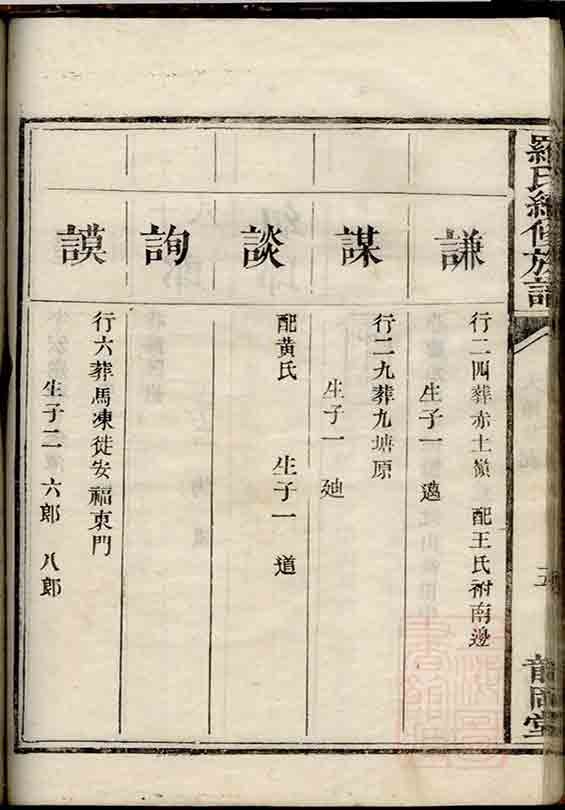 羅氏續修族譜
謙
行二四葬赤土嶺 配王氏祔南邊
生子一 邁
謀
行二九葬九塘原
生子一 廸
談
配黃氏 生子一 道
詢
謨
行六葬馬凍徙安福東門
生子二 六郎 八郎